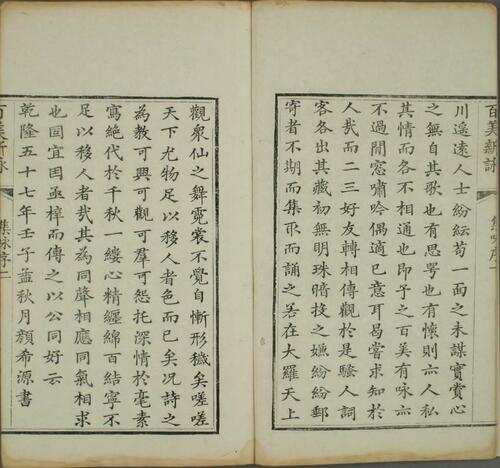 百美新詠
川遥遠人士紛紜苟一面之未謀實賞心
之無自其歌也有思哭也有懷則亦人私
其情而各不相通也即予之百美有咏亦
不過閒窓嘯吟偶適己意耳曷嘗求知於
人哉而二三好友轉相傳觀於是騷人詞
客各出其藏初無明珠暗投之嫌紛紛郵
寄者不期而集取而誦之若在大羅天上
觀衆仙之舞霓裳不覺自慚形穢矣嗟嗟
天下尤物足以移人者色而已矣况詩之
為教可興可觀可羣可怨托深情於毫素
寫絶代於千秋一縷心精纏綿百結寧不
足以移人者哉其為同聲相應同氣相求
也固宜因亟梓而傳之以公同好云
乾隆五十七年壬子孟秋月顏希源書
百美新詠
集咏序二